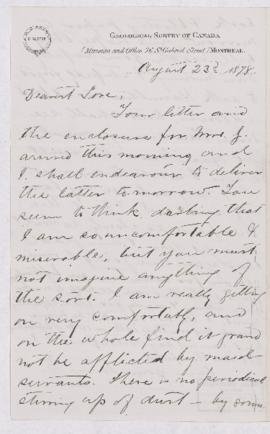 GEOLOGICAL SURVEY OF CANADA
(Museum and Office 76 St Gabriel Street) MONTREAL.
August 23rd 1878.
Dearest Love,
Your letter and
the enclosure for Mrs. G.
arrived this morning and
I shall endeavour to deliver
the latter tomorrow. You
seem to think, darling that
I am so uncomfortable &
miserable, but you must
not imagine anything of
the sort. I am really getting
on very comfortably, and
on the whole find it grand
not be afflicted by maid
servants. There is no periodical
stirring up of dust – by some